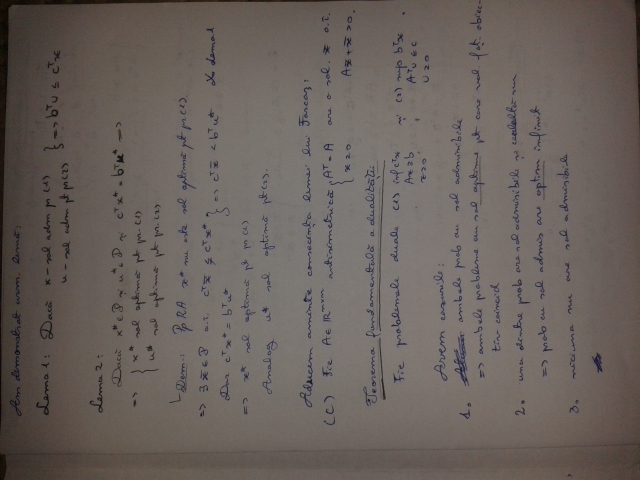 Am demonstrat urm. lemă:
Lema 1: Dacă x - sol adm pr (1)
u - sol adm pt pr (2) } => bᵀu ≤ cᵀx
Lema 2:
Dacă x* ∈ P și u* ∈ D și cᵀx* = bᵀu* =>
=> { x* sol optimă pt pr (1)
u* sol optimă pt pr (2)
Dem: Pp RA x* nu este sol optimă pt pr (1)
=> ∃ x̄ ∈ P a.î. cᵀx̄ ≨ cᵀx*
Dar cᵀx* = bᵀu* } => cᵀx̄ < bᵀu* lema 1
=> x* sol optimă pt pr (1)
Analog u* sol optimă pt (2).
Aducem aminte consecința lemei lui Farcaș:
(C) Fie A ∈ ℝᵐˣᵐ antisimetrică { Aᵀ = A are o sol. x̄ a.î.
x ≥ 0 Ax̄ + x̄ > 0.
Teorema fundamentală a dualității
Fie problemele duale (1) inf cᵀx și (2) sup bᵀx.
Ax ≥ b Aᵀu ≤ c
x ≥ 0 u ≥ 0
Avem cazurile:
1. ambele prob au sol admisibile
=> ambele probleme au sol optime pt care val. fcț. obiec-
tiv coincid
2. una dintre prob are sol admisibile și cealaltă nu
=> prob cu sol admis are optim infinit
3. niciuna nu are sol admisibile